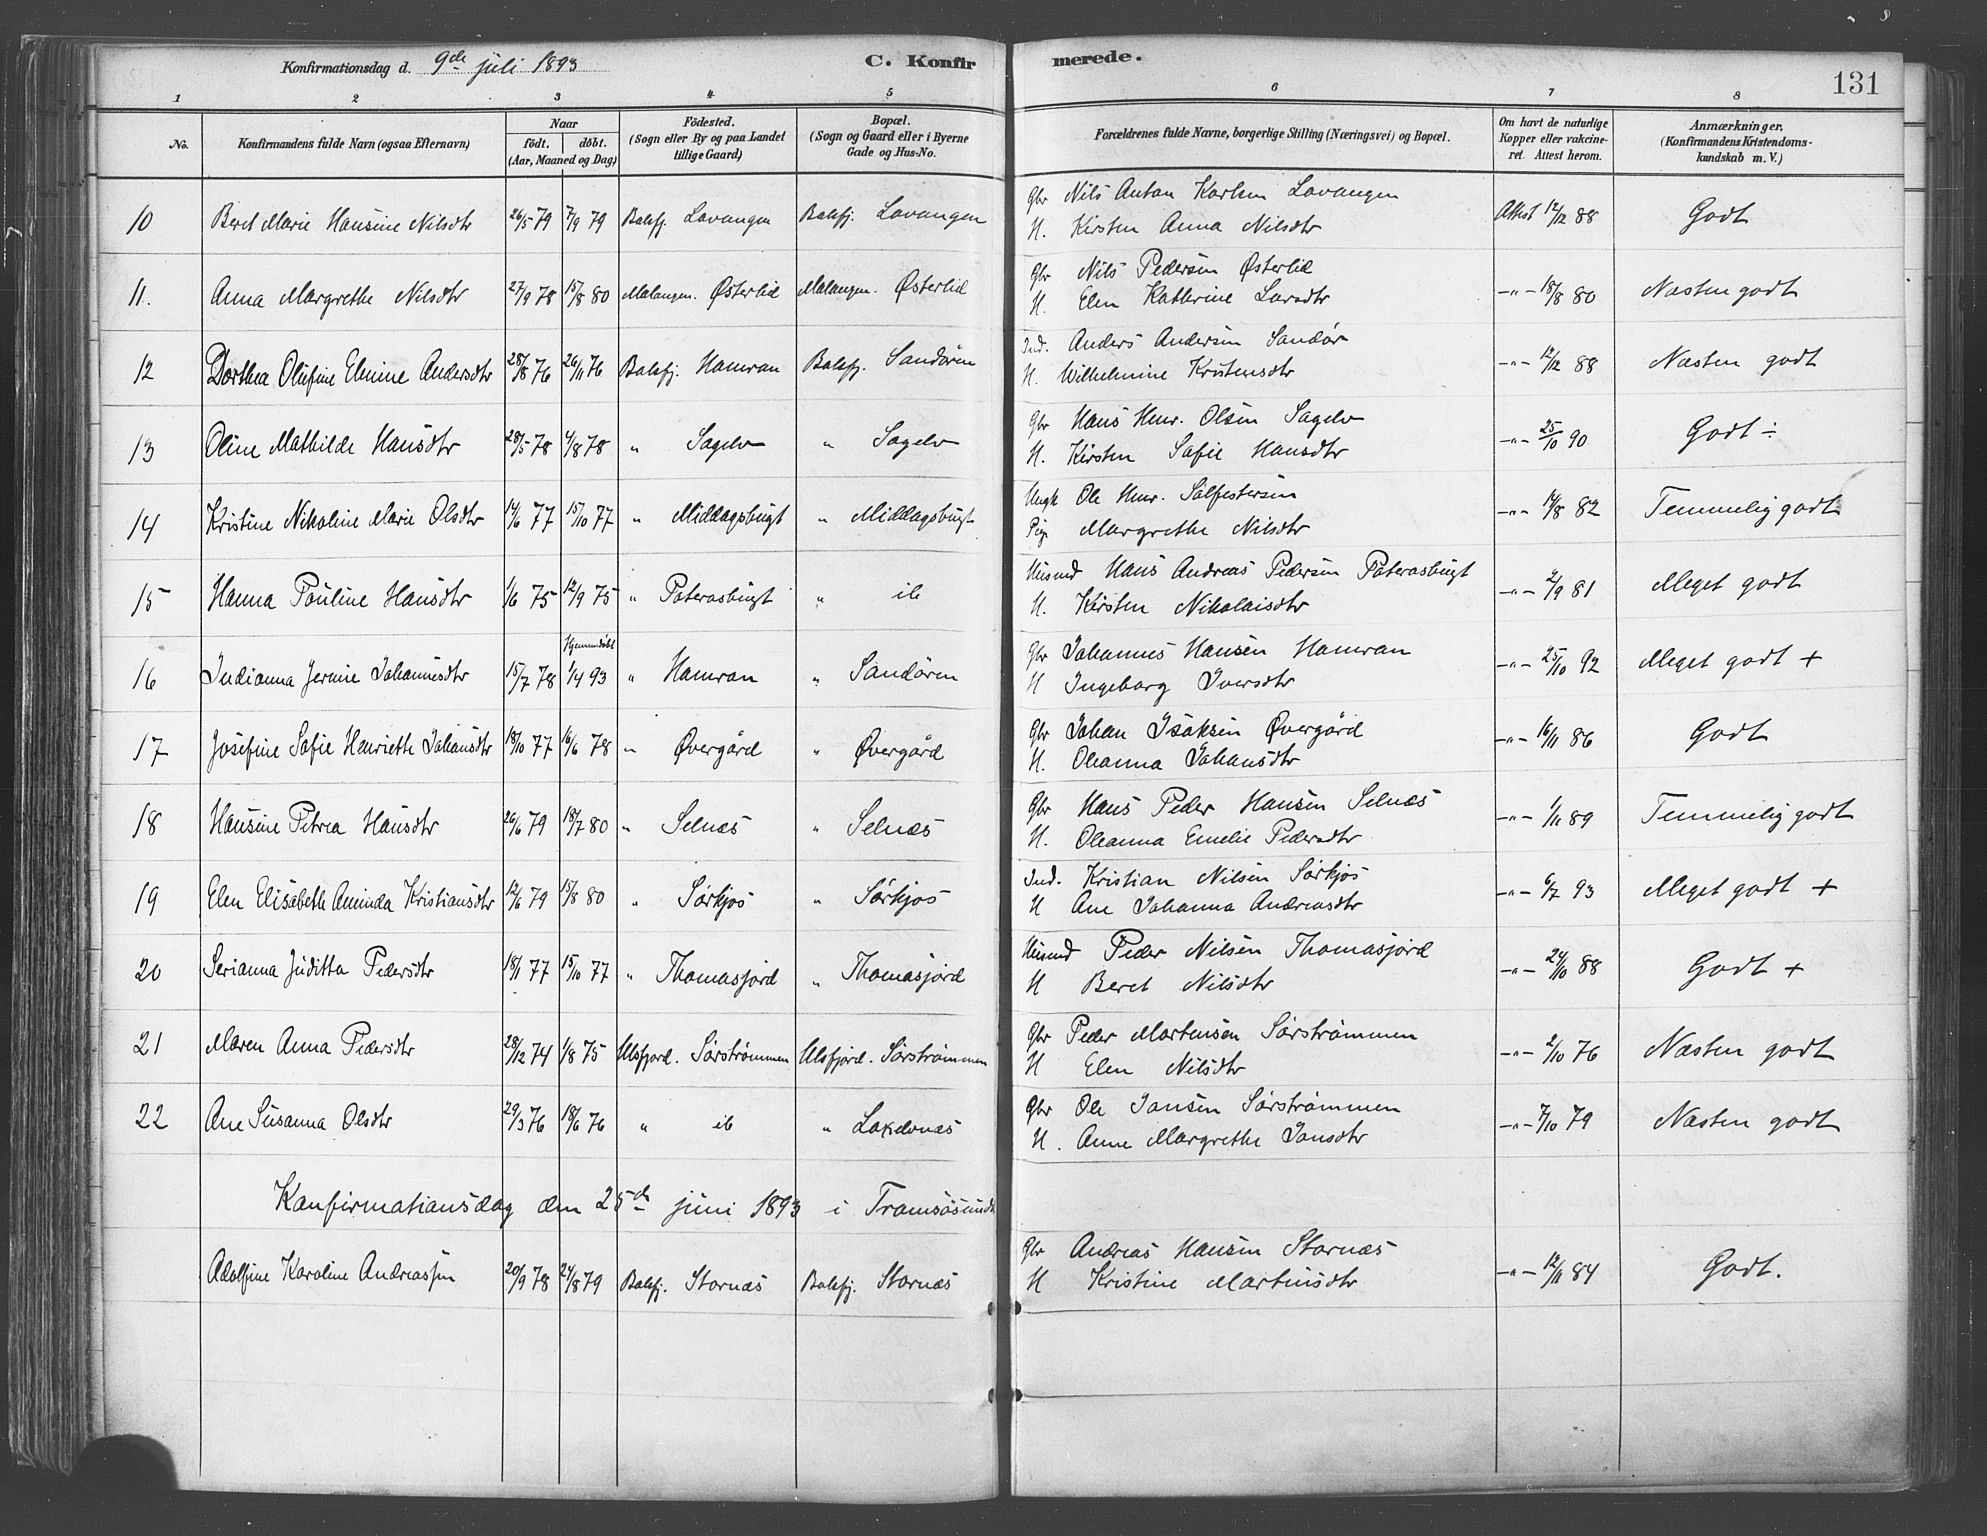 Konfirmationsdag d. 9de juli 1893 C. Konfirmerede. 131
1 2 3 4 5 6 7 8
No. Konfirmandens fulde Navn (ogsaa Efternavn) Naar født. døbt. (Aar, Maaned og Dag) Fødested. (Sogn eller By og paa Landet tillige Gaard) Bopæl. (Sogn og Gaard eller i Byerne Gade og Hus-No. Forældrenes fulde Navne, borgerlige Stilling (Næringsvei) og Bopæl. Om havt de naturlige Kopper eller vakcineret. Attest herom. Anmærkninger, (Konfirmandens Kristendomskundskab m. V.)
10 Beret Marie Hansine Nilsdtr 26/5 79 7/9 79 Balsfj. Lavangen Balsfj. Lavangen Gbr Nils Anton Karlsen Lavangen Attest 12/12 88 Godt
H. Kirsten Anna Nilsdtr
11. Anna Margrethe Nilsdtr 27/9 78 15/8 80 Malangen. Østerlid Malangen. Østerlid Gbr Nils Pedersen Østerlid -"- 18/8 80 Næsten godt
H. Elen Katherine Larsdtr
12 Dorthea Olufine Elenine Andersdtr 28/8 76 26/11 76 Balsfj. Hamran Balsfj. Sandøren Ind. Anders Andersen Sandør -"- 12/12 88 Næsten godt
H. Wilhelmine Kristensdtr
13 Oline Mathilde Hansdtr 28/5 78 4/8 78 " Sagelv " Sagelv Gbr Hans Henr. Olsen Sagelv -"- 25/10 90 Godt ÷
H. Kirsten Sofie Hansdtr
14 Kristine Nikoline Marie Olsdtr 14/6 77 15/10 77 " Middagsbugt " Middagsbugt Ungk Ole Henr. Salfestersen -"- 14/8 82 Temmelig godt
Pige Margrethe Nilsdtr
15 Hanna Pouline Hansdtr 1/6 75 12/9 75 " Paterasbugt " ib Husmd Hans Andreas Pedersen Paterasbugt -"- 2/9 81 Meget godt
H. Kirsten Nikolaisdtr
16 Indianna Jermie Johannesdtr 15/7 78 Hjemmedøbt 1/4 93 " Hamran " Sandøren Gbr Johannes Hansen Hamran -"- 25/10 92 Meget godt +
H Ingeborg Iversdtr
17 Josefine Sofie Henriethe Johansdtr 18/10 77 16/6 78 " Øvergård " Øvergård Gbr Johan Isaksen Øvergård -"- 16/11 86 Godt
H. Oleanna Johansdtr
18 Hansine Petrea Hansdtr 26/6 79 18/7 80 " Selnæs " Selnæs Gbr Hans Peder Hansen Selnæs -"- 1/11 89 Temmelig godt
H. Oleanna Emelie Pedersdtr
19 Elen Elisabeth Aminda Kristiansdtr 12/6 79 15/8 80 " Sørkjos " Sørkjos Ind. Kristian Nilsen Sørkjos -"- 6/7 93 Meget godt +
H Ane Johanna Andreasdtr
20 Serianna Juditta Pedersdtr 18/1 77 15/10 77 " Thomasjord " Thomasjord Husmd Peder Nilsen Thomasjord -"- 24/10 88 Godt +
H Beret Nilsdtr
21 Maren Anna Pedersdtr 28/12 74 1/8 75 Ulsfjord. Sørstrømmen Ulsfjord. Sørstrømmen Gbr Peder Mortensen Sørstrømmen -"- 2/10 76 Næsten godt
H Elen Nilsdtr
22 Ane Susanna Olsdtr 29/3 76 18/6 76 " ib " Laxelvnæs Gbr Ole Jansen Sørstrømmen -"- 7/10 79 Næsten godt
H. Anne Margrethe Jansdtr
Konfirmationsdag den 25de juni 1893 i Tromsøsundet
Adolfine Karoline Andreassen 20/9 78 24/8 79 Balsfj. Stornæs Balsfj. Stornæs Gbr Andreas Hansen Stornæs -"- 12/11 84 Godt.
H Kristine Martinsdtr